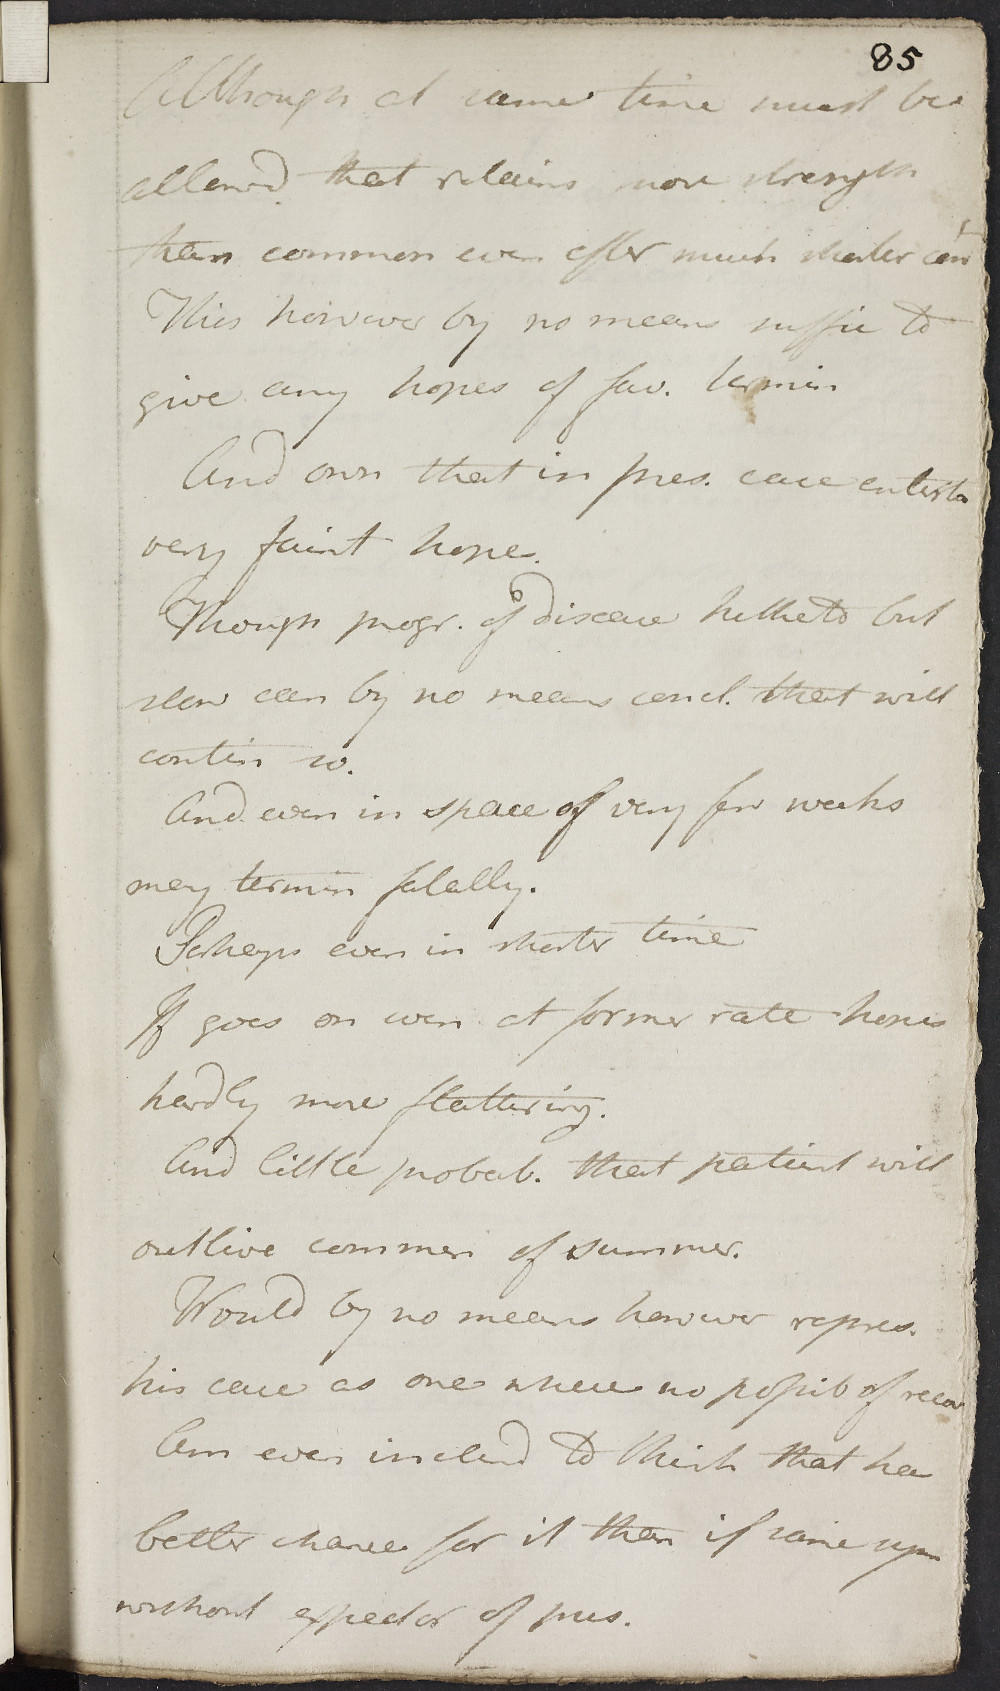 85
Although at same time must be
allowd that retains more strength
than common even after much shorter con
This however by no means suffic to
give any hopes of fav. termin
And own that in pres. case enterta
very faint hope.
Though progr. of disease hitherto but
slow can by no means concl. that will
contin so.
And even in space of very few weeks
may termin fatally.
Perhaps even in shorter time
If goes on even at former rate hopes
hardly more flattering.
And little probab. that patient will
outlive commen of summer.
Would by no means however repres.
his case as one where no possib of recov
Am even inclind to think that has
better chance for it than if same sym
without expector of pus.